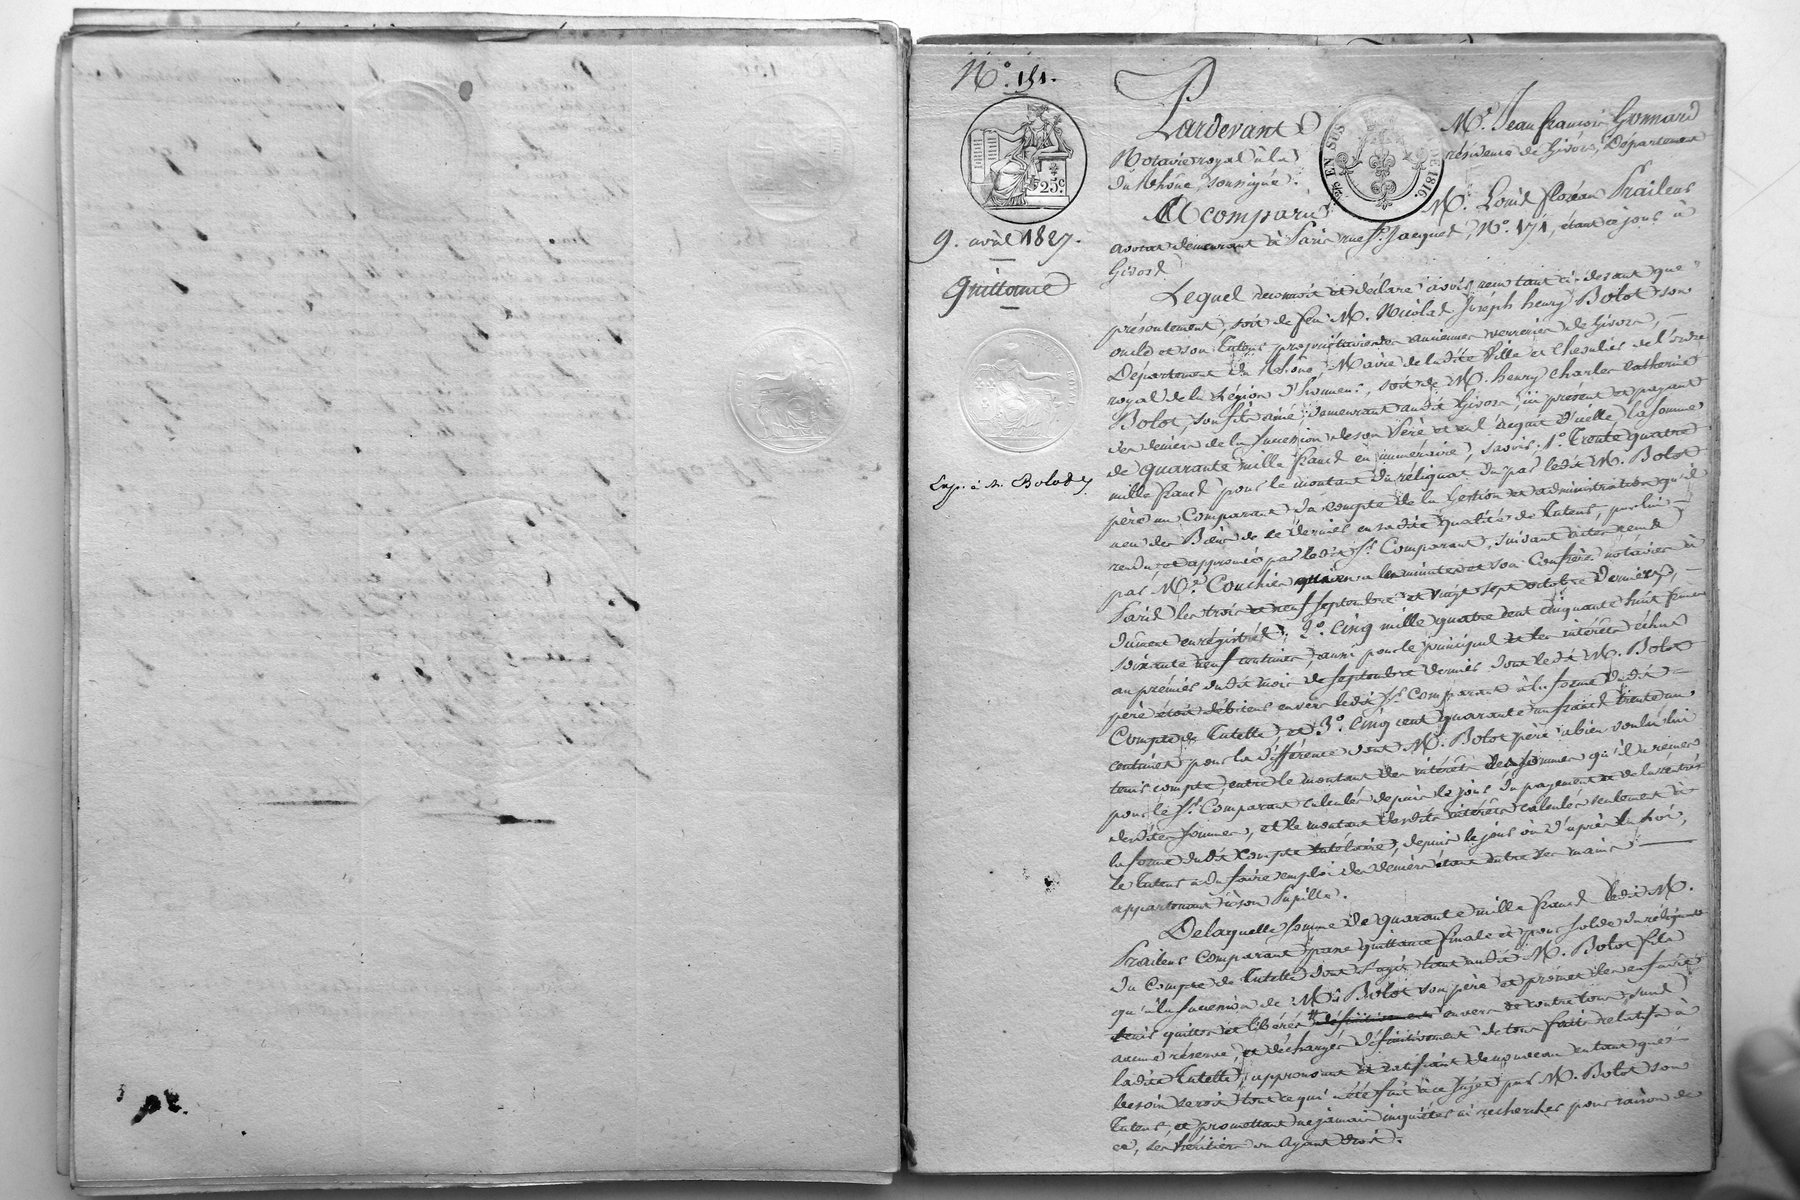 N.° 151.
25.c
EN SUS
DE 1816.
9. avril 1827.
Quittance
Exp. à M. Bolot
Pardevant M.e Jean françois Gonnard
Notaire royal à la résidence de Givors, Département
du Rhône, soussigné.
A comparu M. Louis florian Prailens
avocat demeurant à Paris rue St. Jacques, N.° 171, étant ce jour à
Givors
Lequel reconnoit et déclare avoir reçu tant ci-devant que
présentement, soit de feu M. Nicolas Joseph henry Bolot son
oncle et son Tuteur propriétaire des anciennes verreries de Givors,
Département du Rhône, Maire de ladite Ville et Chevalier de l'ordre
royal de la Légion d'honneur, soit de M. henry Charles Catherine
Bolot, son fils aîné, demeurant audit Givors, ici présent et payant
des deniers de la succession de son Père et en l'acquit d'icelle, la somme
de quarante mille francs en numéraire, savoir: 1.° Trente quatre
mille francs pour le montant du réliquat dû par ledit M. Bolot
père au Comparant du compte de la Gestion et administration qu'il
a eu des Biens de ce dernier en sadite qualité de Tuteur, par lui
rendu et approuvé par ledit Sr. Comparant, suivant actes reçus
par M.e Couchies qui en a les minutes et son Confrère notaires à
Paris les trois et neuf septembre et vingt sept octobre derniers,
dûment enregistrés; 2.° Cinq mille quatre cent cinquante huit francs
soixante neuf centimes, aussi pour le principal et les intérêts échus
au premier dudit mois de septembre dernier dont ledit M. Bolot
père étoit débiteur envers ledit Sr. Comparant à la forme dudit
Compte de Tutelle, et 3.° Cinq cent quarante un francs trente un
centimes pour la différence dont M. Bolot père a bien voulu lui
tenir compte, entre le montant des intérêts des sommes qu'il a reçues
pour le Sr. Comparant calculés depuis le jour du payement et de la rentrée
desdites sommes, et le montant desdits intérêts calculés seulement à
la forme dudit Compte tutélaire, depuis le jour où d'après la Loi,
le Tuteur a dû faire emploi des deniers étant entre ses mains
appartenant à son Pupille.
De laquelle somme de quarante mille francs ledit M.
Prailens Comparant passe quittance finale et pour solde du réliquat
du Compte de Tutelle dont s'agit tant audit M. Bolot fils
qu'à la succession de M. Bolot son père et promet les en faire
tenir quittes et libérés définitivement envers et contre tous, sans
aucune réserve, et décharger définitivement de tous faits relatifs à
ladite Tutelle, approuvant et ratifiant de nouveau en tant que
besoin seroit tout ce qui a été fait à ce sujet par M. Bolot son
Tuteur, et promettant ne jamais inquiéter ni rechercher pour raison de
ce, ses héritiers ou ayant droit.